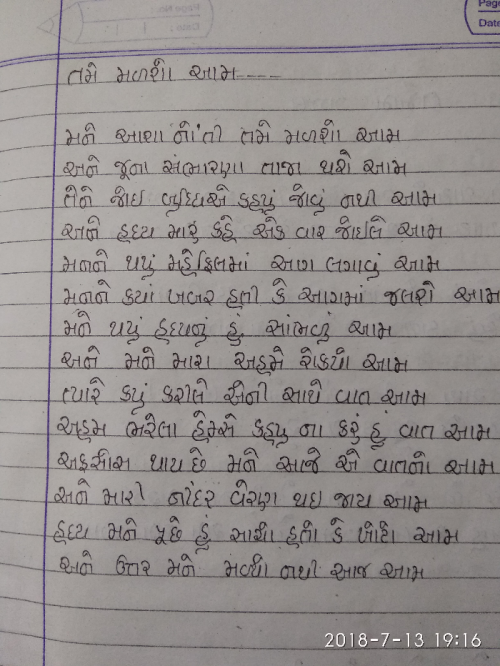 Page No.:
Date:
Page
Date
તમે મળશો આમ----
મને આશા નોંતી તમે મળશો આમ
અને જૂના સંભારણા તાજા થશે આમ
તેને જોઈ બુધ્ધિએ કહ્યું જોવું નથી આમ
અને હ્રદય મારું કહે એક વાર જોઇલે આમ
મનને થયું મહેફિલમાં આગ લગાવું આમ
મનને ક્યાં ખબર હતી કે આગમાં જલશે આમ
મને થયું હ્રદયનું હું સાંભળું આમ
અને મને મારા અહમે રોક્યો આમ
ત્યારે કહ્યું કરીલે એની સાથે વાત આમ
અહમ ભરેલા હેમ્સે કહ્યુ ના કરું હું વાત આમ
અફસોસ થાય છે મને આજે એ વાતનો આમ
અને મારી નીંદર વેરણ થઇ જાય આમ
હ્રદય મને પૂછે હું સાચો હતો કે ખોટો આમ
અને ઉત્તર મને મળ્યો નથી આજ આમ
2018-7-13 19:16